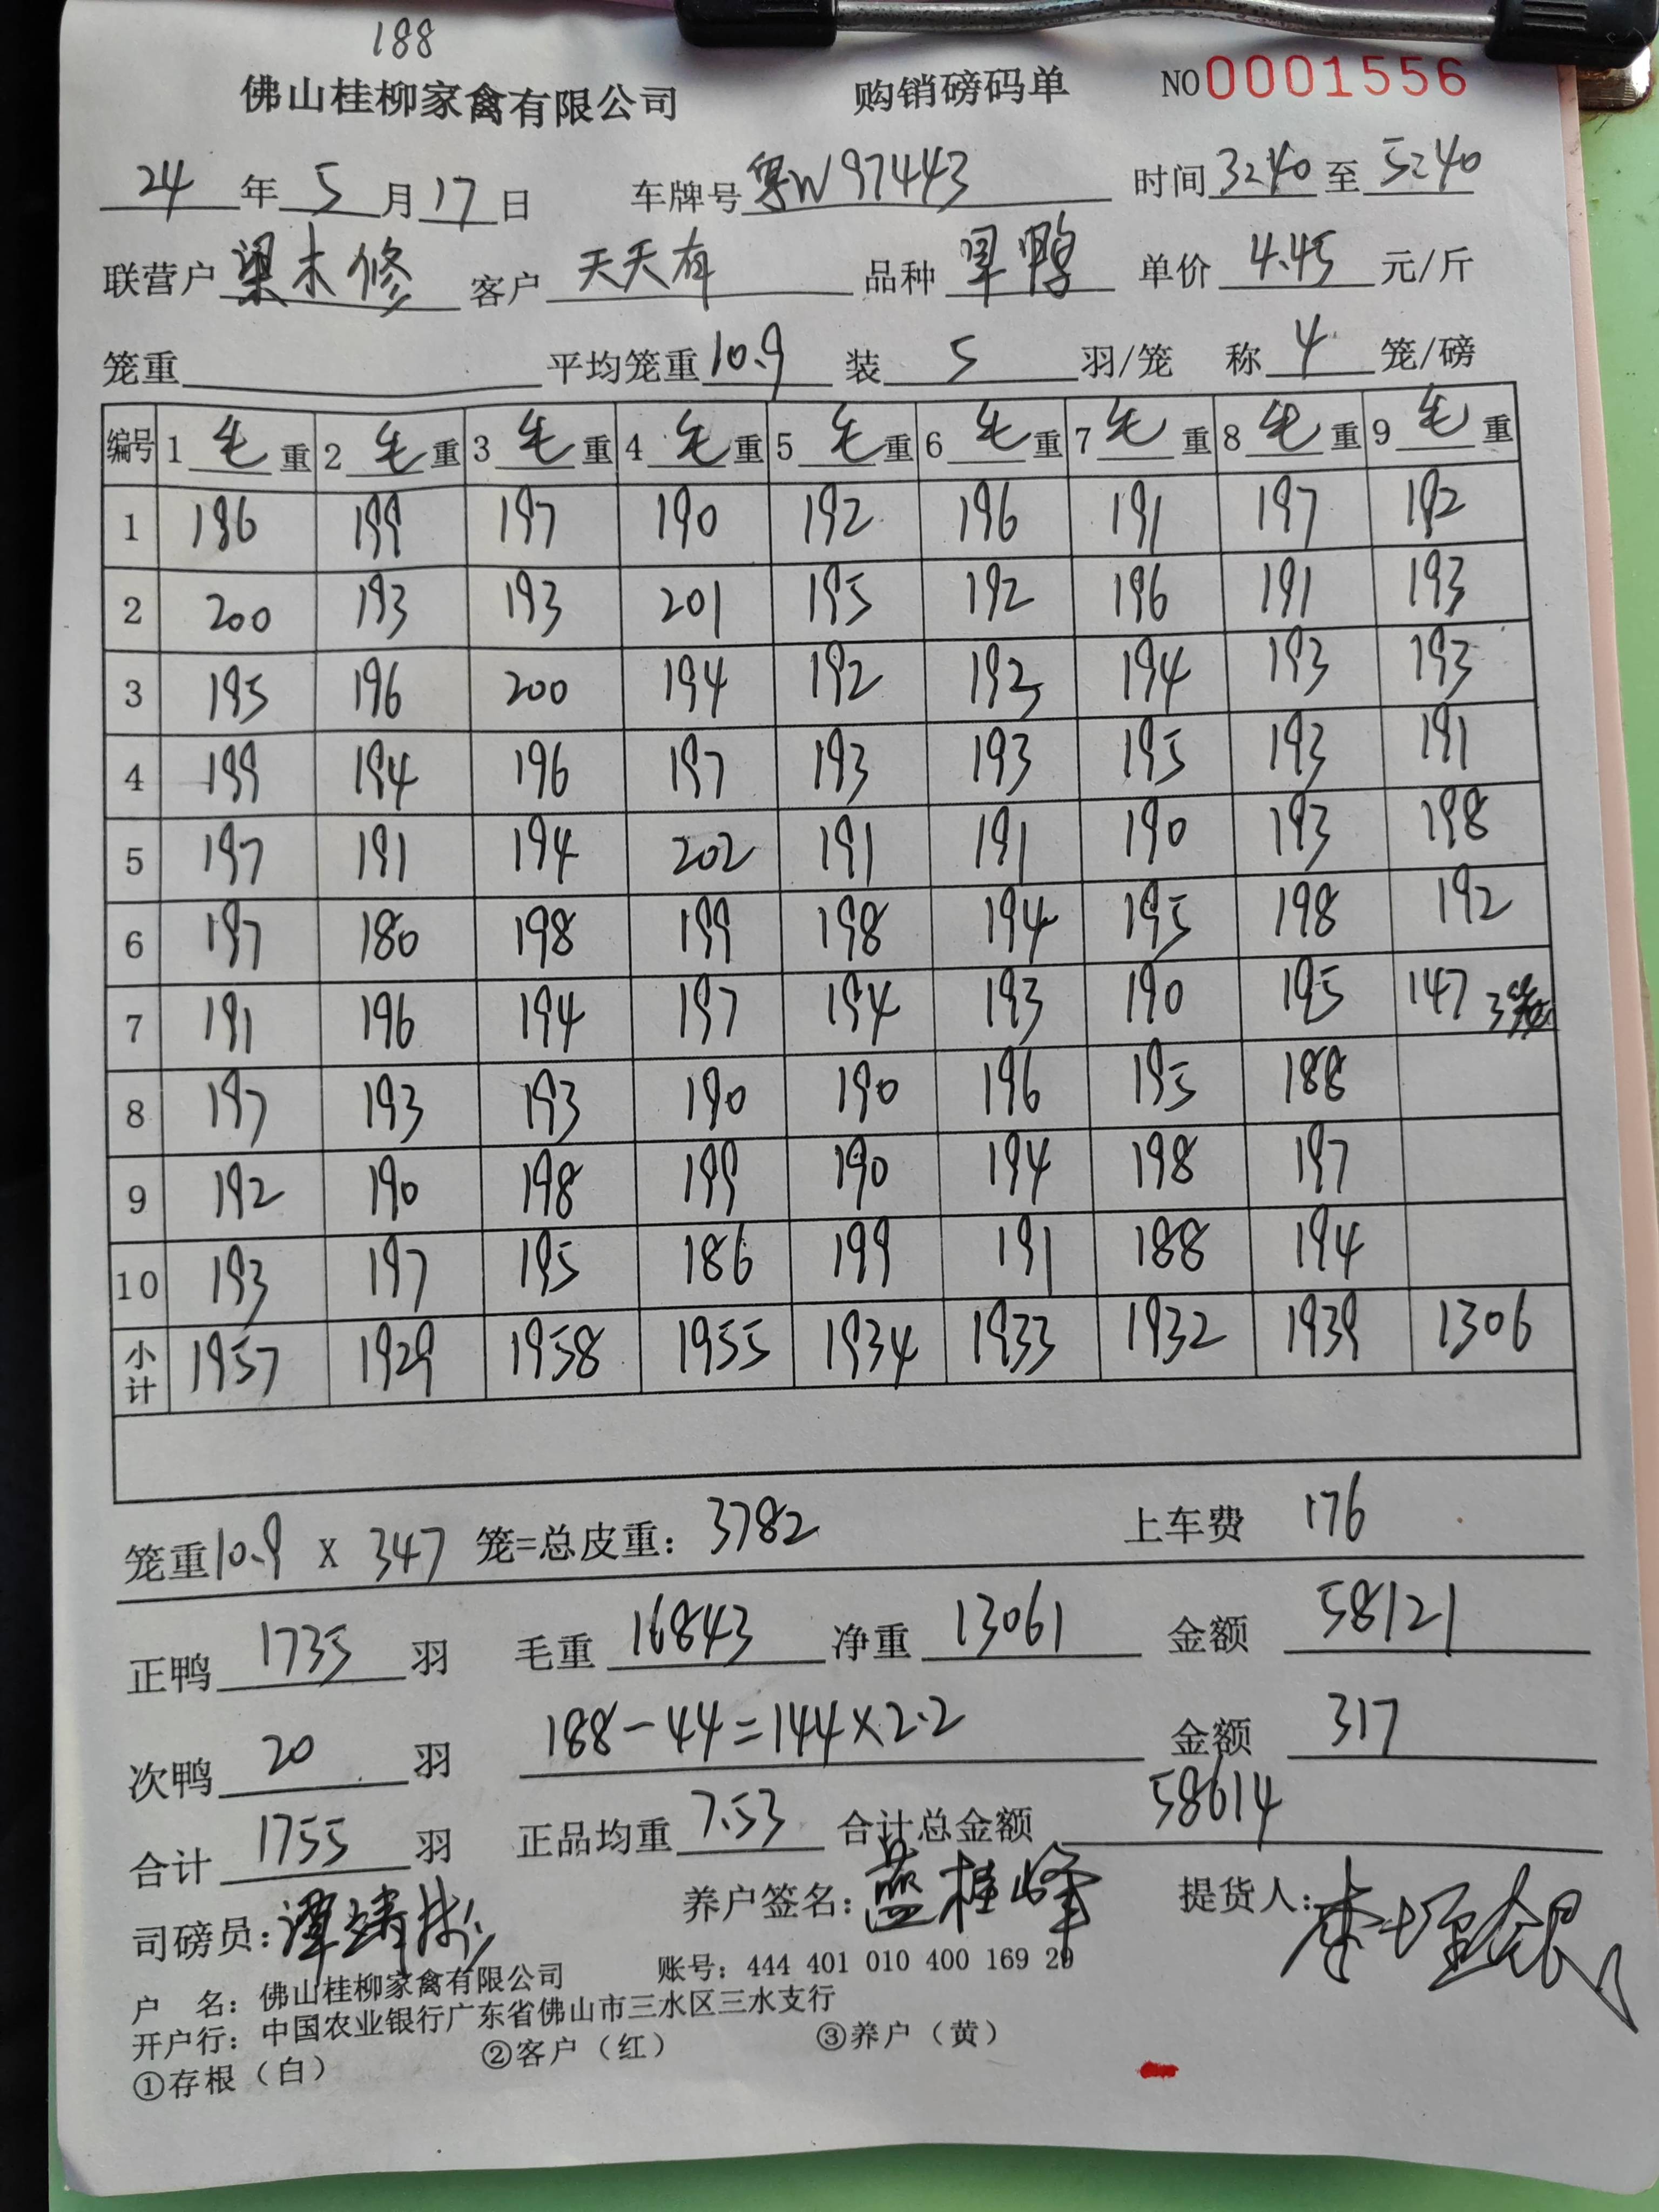 188
佛山桂柳家禽有限公司 购销磅码单 NO 0001556
24年5月17日 车牌号粤W97443 时间3:40至5:40
联营户梁木修 客户天天有 品种旱鸭 单价4.45元/斤
笼重 平均笼重10.9 装5羽/笼 称4笼/磅
编号 1毛重 2毛重 3毛重 4毛重 5毛重 6毛重 7毛重 8毛重 9毛重
1 196 199 197 190 192 196 191 197 192
2 200 193 193 201 195 192 196 191 193
3 195 196 200 194 192 193 194 193 193
4 199 194 196 197 193 193 195 193 191
5 197 191 194 202 191 191 190 193 198
6 197 180 198 199 198 194 195 198 192
7 191 196 194 197 194 193 190 195 147 3笼
8 197 193 193 190 190 196 195 188
9 192 190 198 199 190 194 198 197
10 193 197 195 186 199 191 188 194
小计 1957 1929 1958 1955 1934 1933 1932 1939 1306
笼重10.9 X 347 笼=总皮重: 3782 上车费 176
正鸭 1735 羽 毛重 16843 净重 13061 金额 58121
次鸭 20 羽 188-44=144×2.2 金额 317
合计 1755 羽 正品均重 7.53 合计总金额 58614
司磅员: 养户签名: 蓝桂峰 提货人:
户 名: 佛山桂柳家禽有限公司 账号: 444 401 010 400 169 29
开户行: 中国农业银行广东省佛山市三水区三水支行
①存根（白） ②客户（红） ③养户（黄）